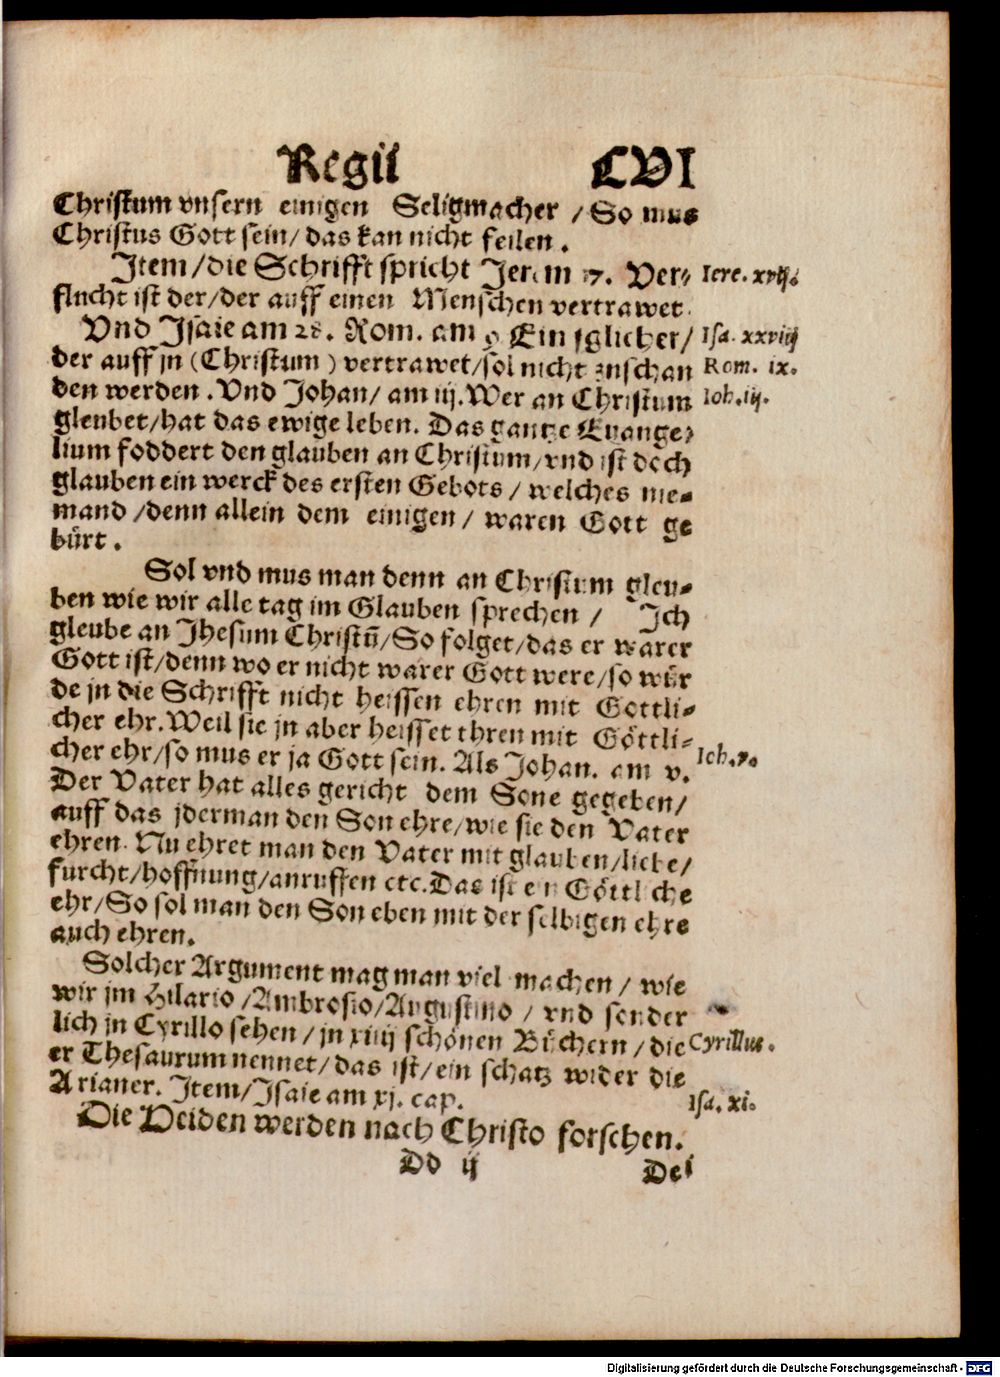 Regii CVI
Christum vnsern einigen Seligmacher / So mus
Christus Gott sein / das kan nicht feilen.
Item / die Schrifft spricht Jerem 17. Ver⸗ Iere. xvij.
flucht ist der / der auff einen Menschen vertrawet.
Vnd Jsaie am 28. Rom. am 9 Ein jglicher / Isa. xxviij
der auff jn (Christum) vertrawet / sol nicht zuschan Rom. ix.
den werden. Vnd Johan / am iij. Wer an Christum Ioh. iij.
gleubet / hat das ewige leben. Das gantze Euange⸗
lium foddert den glauben an Christum / vnd ist doch
glauben ein werck des ersten Gebots / welches nie⸗
mand / denn allein dem einigen / waren Gott ge
bürt.
Sol vnd mus man denn an Christum gleu⸗
ben wie wir alle tag im Glauben sprechen / Ich
gleube an Jhesum Christū / So folget / das er warer
Gott ist / denn wo er nicht warer Gott were / so wür
de jn die Schrifft nicht heissen ehren mit Gottli⸗
cher ehr. Weil sie jn aber heisset ehren mit Göttli⸗
cher ehr / so mus er ja Gott sein. Als Johan. am v. Ioh. v.
Der Vater hat alles gericht dem Sone gegeben /
auff das jderman den Son ehre / wie sie den Vater
ehren. Nu ehret man den Vater mit glauben / liebe /
furcht / hoffnung / anruffen etc. Das ist ein Göttliche
ehr / So sol man den Son eben mit der selbigen ehre
auch ehren.
Solcher Argument mag man viel machen / wie
wir im Hilario / Ambrosio / Augustino / vnd sonder
lich in Cyrillo sehen / jn xiiij schönen Büchern / die Cyrillus.
er Thesaurum nennet / das ist / ein schatz wider die
Arianer. Item / Jsaie am xj. cap. Isa. xi.
Die Heiden werden nach Christo forschen.
Dd ij Des
Digitalisierung gefördert durch die Deutsche Forschungsgemeinschaft - DFG